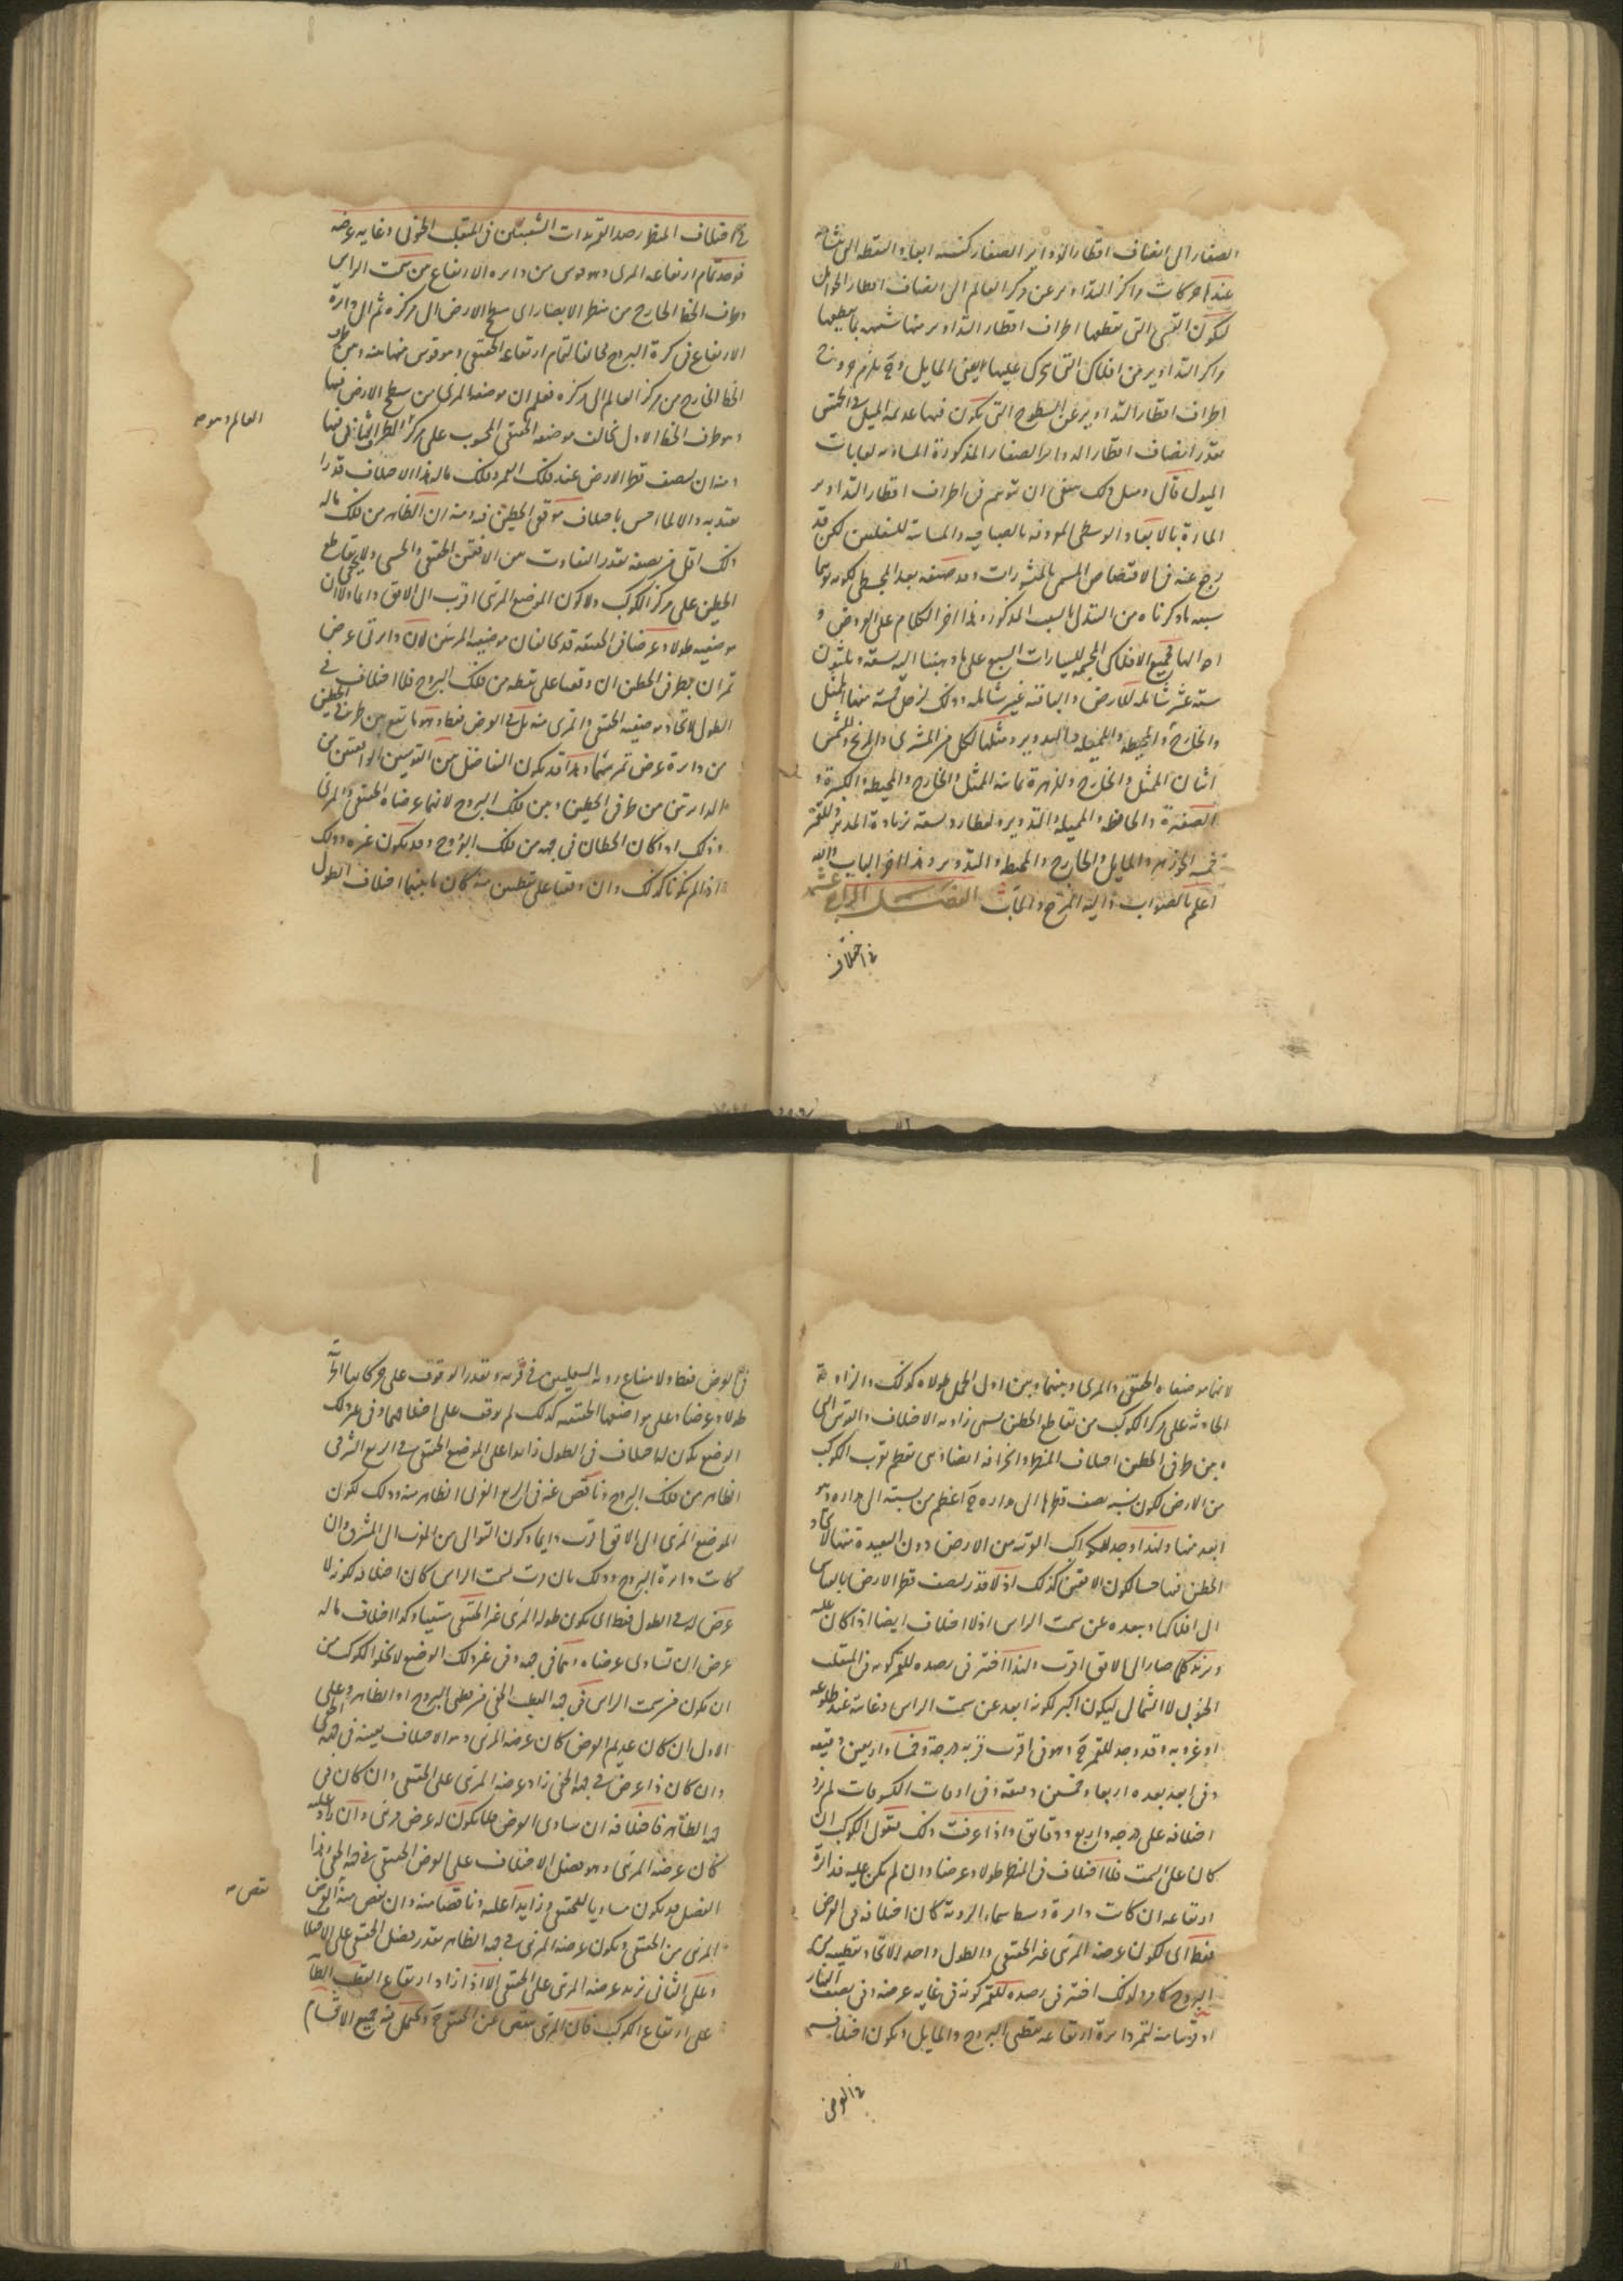 الصغار الى انصاف اقطار الدواير الصغار كنسبة ابعاد النقطة التى تتشابه
عندها حركات مراكز التداوير عن مركز العالم الى انصاف اقطار الحوامل
لتكون القسى التى تقطعها اطراف اقطار التداوير منها شبيهة بما يقطعها
مراكز التداوير من افلاكها التى تتحرك عليها اعنى المايل وح يلزم خروج
اطراف اقطار التداوير عن السطوح التى تكون فيها عديمة الميل فى الحس
بقدر انصاف اقطار الدواير الصغار المذكورة المساوية لغايات
الميول قال ومثل ذلك ينبغى ان يتوهم فى اطراف اقطار التداوير
المارة بالابعاد الوسطى الموذية بالصباحية والمسايية للسفليين لكن قد
رجع عنه فى الاقتصاص المسمى بالمنشورات وقد صنفه بعد المجسطى لكونه توهما
سببه ما ذكرناه من السبب المذكور وهذا اخر الكلام على العروض و
احوالها فجميع الافلاك المجسمة للسيارات السبع على ما ذهبنا اليه ستة وثلثون
ستة عشر شاملة للارض والباقية غير شاملة وذلك لزحل خمسة منها الممثل
والخارج والمحيطة والمميلة والتدوير ومثلها لكل من المشترى والمريخ وللشمس
اثنان الممثل والخارج وللزهرة ثمانية الممثل والخارج والمحيطة الكبيرة و
الصغيرة والحافظة والمميلة والتدوير ولعطارد تسعة بزيادة المدير وللقمر
خمسة الجوزهر والمايل والخارج والمحيطة والتدوير وهذا اخر الباب والله
اعلم بالصواب واليه المرجع والماب الفصل الرابع عشر
فى اختلاف
فى اختلاف المنظر رصد القمر بذات الشعبتين فى المنقلب الجنوبى وغاية عرضه
فوجد تمام ارتفاعه المرئى وهو قوس من دايرة الارتفاع من سمت الراس
وطرف الخط الخارج من منظر الابصار اى سطح الارض الى مركزه ثم الى دايرة
الارتفاع فى كرة البروج مخالفا لتمام ارتفاعه الحقيقى وهو قوس منها بينه وبين طرف
الخط الخارج من مركز العالم الى مركزه فعلم ان موضعه المرئى من سطح الارض فيها
العالم وهو
وهو طرف الخط الاول يخالف موضعه الحقيقى المحسوب على مركز الطرف الثانى فيها
ومنه ان لنصف قطر الارض عند فلك القمر وفلك ماله هذا الاختلاف قدرا
يعتد به والا لما احس باختلاف موقعى الخطين فيه ومنه ان الظاهر من فلك ماله
ذلك اقل من نصفه بقدر التفاوت بين الافقين الحقيقى والحسى ولا يخفى تقاطع
الخطين على مركز الكوكب ولا كون الموضع المرئى اقرب الى الافق دايما ولا ان
موضعيه طولا وعرضا فى الحقيقة قد يخالفان موضعيه المرئيين لان دايرتى عرض
تمران بطرفى الخطين ان وقعتا على نقطة من فلك البروج فلا اختلاف فى
الطول لاتحاد موضعيه الحقيقى والمرئى منه بل فى العرض فقط وهو ما يقع بين طرفى الخطين
من دايرة عرض تمر بهما وهذا قد يكون التفاضل بين القوسين الواقعتين من
الدايرتين من طرفى الخطين وبين فلك البروج لانهما عرضاه الحقيقى والمرئى
وذلك اذا كان الخطان فى جهة من فلك البروج وقد يكون غيره وذلك
اذا لم يكونا كذلك وان وقعتا على نقطتين منه كان ما بينهما اختلاف الطول
لانهما موضعاه الحقيقى والمرئى وبينهما وبين اول الحمل طولاه كذلك والزاوية
الحادثة على مركز الكوكب من تقاطع الخطين تسمى زاوية الاختلاف والقوس التى
بين طرفى الخطين اختلاف المنظر وانحرافه ايضا وهى تعظم بقرب الكوكب
من الارض لكون نسبة نصف قطرها الى مداره ح اعظم من نسبته الى مداره وهو
ابعد منها ولهذا وجد للكواكب القريبة من الارض دون البعيدة منها لاتحاد
الخطين فيها حسا لكون الافقين كذلك اذ لا قدر لنصف قطر الارض بالقياس
الى افلاكها وببعده عن سمت الراس اذ لا اختلاف ايضا اذا كان عليه
ويزيد كلما صار الى الافق اقرب ولهذا اختير فى رصده للقمر كونه فى المنقلب
الجنوبى لا الشمالى ليكون اكبر لكونه ابعد عن سمت الراس وغايته عند طلوعه
او غروبه وقد وجد للقمر ح وهو فى اقرب قربه درجة وخمسا واربعين دقيقة
وفى ابعد بعده اربعا وخمسين دقيقة وفى اوقات الكسوفات لم يزد
اختلافه على درجة واربع دقايق واذا عرفت ذلك فنقول الكوكب ان
كان على السمت فلا اختلاف فى المنظر طولا وعرضا وان لم يكن عليه فدايرة
ارتفاعه ان كانت دايرة وسط سماء الروية كان اختلافه فى العرض
فقط اى لكون عرضه المرئى غير الحقيقى والطول واحد لاتحاد نقطتيه من
البروج كما مر ولذلك اختير فى رصده للقمر كونه فى غاية عرضه وفى نصف النهار
او قريبا منه لتمر دايرة ارتفاعه بقطبى البروج والمايل ويكون اختلافه
فى العرض
فى العرض فقط ولا
طولا وعرضا وعلى مواضعها الحقيقية كذلك لم يوقف على اختلافهما وفى غير ذلك
الوضع يكون له اختلاف فى الطول زايدا على الموضع الحقيقى فى الربع الشرقى
الظاهر من فلك البروج وناقص عنه فى الربع الغربى الظاهر منه وذلك لكون
الموضع المرئى الى الافق اقرب دايما وكون التوالى من المغرب الى المشرق وان
كانت دايرة البروج وذلك بان مرت بسمت الراس كان اختلافه لكونه لا
عرض له فى الطول فقط اى يكون طوله المرئى غير الحقيقى وكذا اختلاف ماله
عرض ان تساوى عرضاه وهما فى جهة وفى غير ذلك الوضع لا يخلو الكوكب من
ان يكون من سمت الراس فى جهة القطب الخفى من قطبى البروج او الظاهر وعلى
الاول ان كان عديم العرض كان عرضه المرئى وهو الاختلاف بعينه فى جهة الخفى
وان كان ذا عرض فى جهة الخفى زاد عرضه المرئى على الحقيقى وان كان فى
جهة الظاهر فاختلافه ان ساوى العرض فلا يكون له عرض مرئى وان زاد عليه
كان عرضه المرئى وهو فضل الاختلاف على العرض الحقيقى فى جهة الخفى وهذا
الفضل قد يكون مساويا للحقيقى وزايدا عليه وناقصا منه وان نقص منه العرض
نقص
المرئى من الحقيقى ويكون عرضه المرئى فى جهة الظاهر بقدر فضل الحقيقى على الاختلاف
وعلى الثانى يزيد عرضه المرئى على الحقيقى الا اذا زاد ارتفاع القطب الظاهر
على ارتفاع الكوكب فان المرئى ينقص عن الحقيقى ح ويحتمل فيه جميع الاقسام